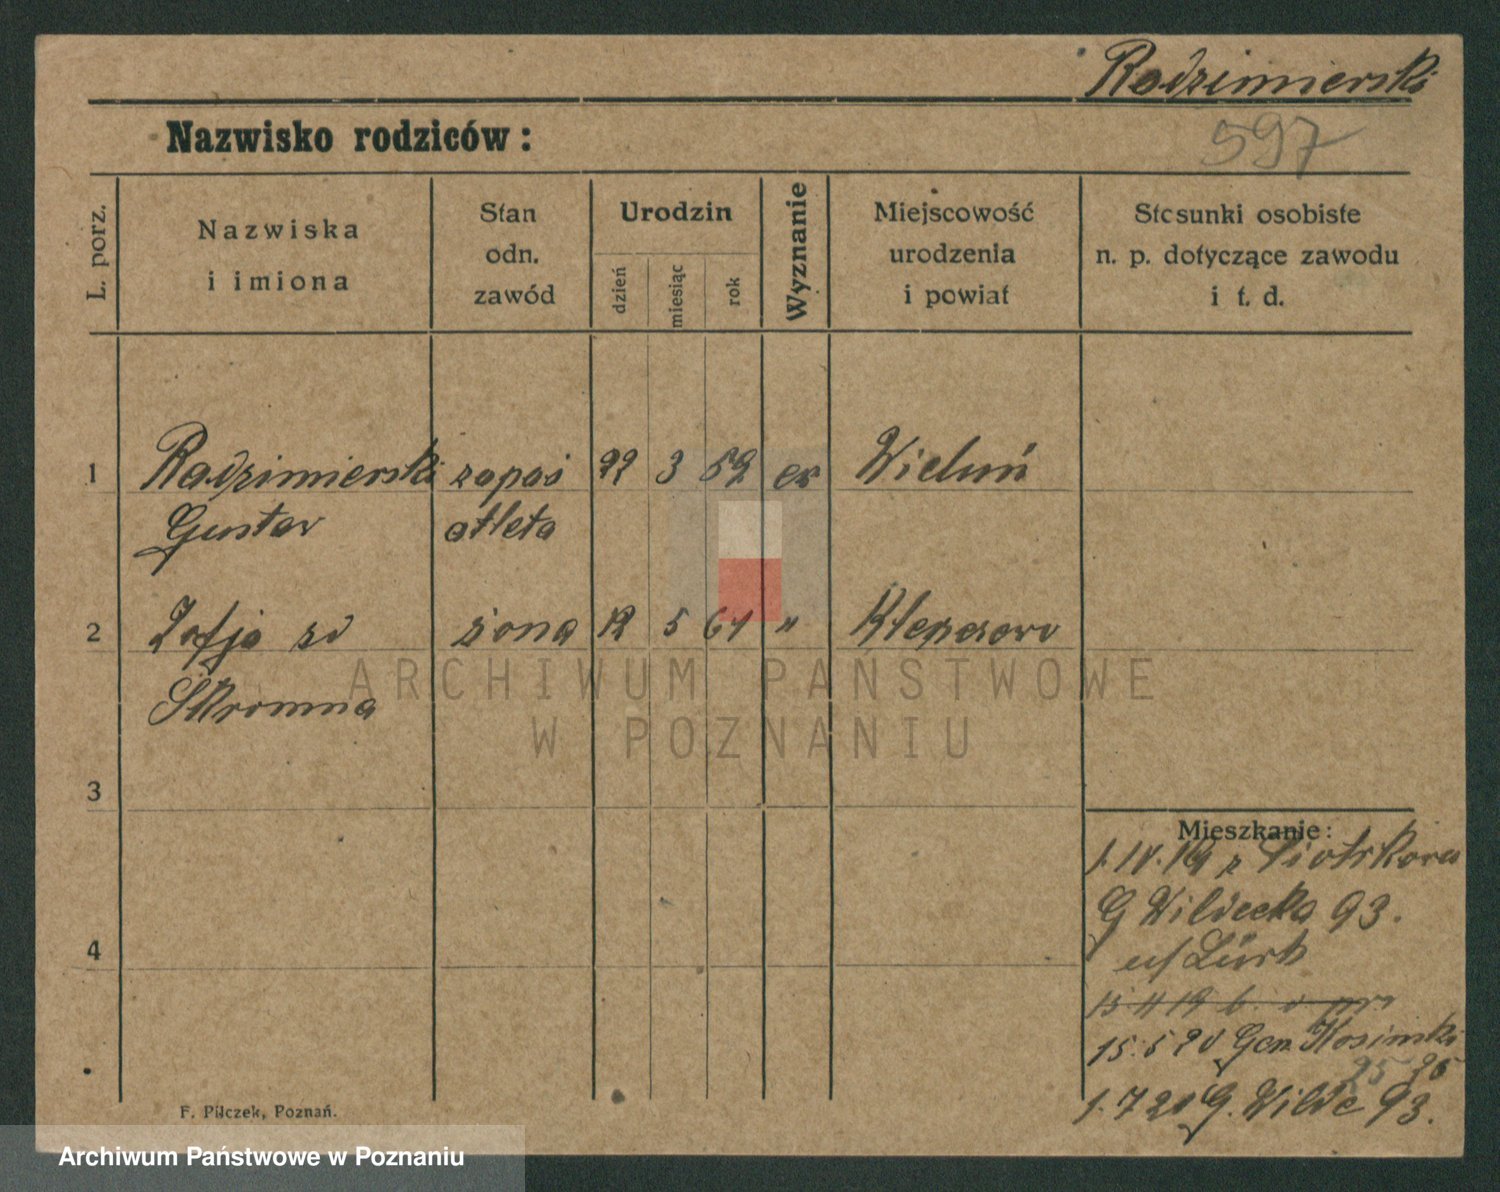 Radzimierski
Nazwisko rodziców:
597
L. porz.
Nazwiska
i imiona
Stan
odn.
zawód
Urodzin
dzień
miesiąc
rok
Wyznanie
Miejscowość
urodzenia
i powiat
Stosunki osobiste
n. p. dotyczące zawodu
i t. d.
1 Radzimierski zapaś 22 3 59 ew Wieluń
Gustav atleta
2 Zofja zd żona 12 5 61 "
Skromna
3
4
Mieszkanie:
1.IV.19 z Piotrkowa
G Wildecka 93.
u/ Türk
15 4 19
15.5 20 Gen Kosinski
25 26
1.7 20 G. Wilde 93.
F. Pilczek, Poznań.
ARCHIWUM PAŃSTWOWE
W POZNANIU
Archiwum Państwowe w Poznaniu